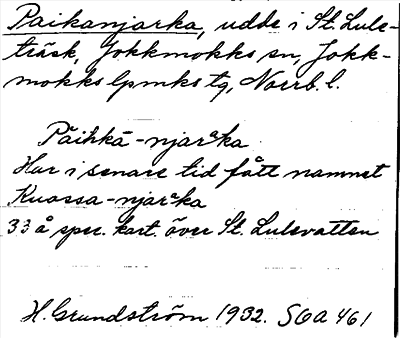 Paikanjarka, udde i St. Lule-
träsk, Jokkmokks sn, Jokk-
mokks lpmks tg, Norrb. l.
Päihkā-njarᵃka
Har i senare tid fått namnet
Kuossa-njarᵃka
33 å spec. kart. över St. Lulevatten
H. Grundström 1932. SOA 461